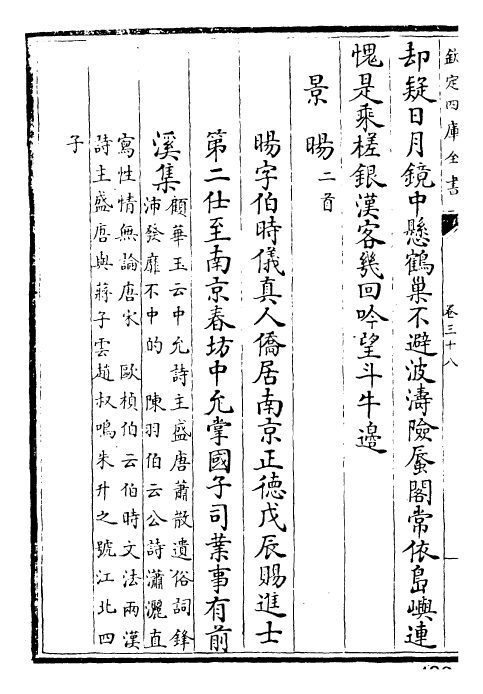 欽定四庫全書
卷三十八
却疑日月鏡中懸鶴巢不避波濤險蜃閣常依島嶼連
愧是乘槎銀漢客幾回吟望斗牛邉
景暘二首
暘字伯時儀真人僑居南京正德戊辰賜進士
第二仕至南京春坊中允掌國子司業事有前
溪集顧華玉云中允詩主盛唐蕭散遺俗詞鋒
沛發靡不中的　陳羽伯云公詩瀟灑直
寫性情無論唐宋　歐楨伯云伯時文法兩漢
詩主盛唐與蔣子雲趙叔鳴朱升之號江北四
子